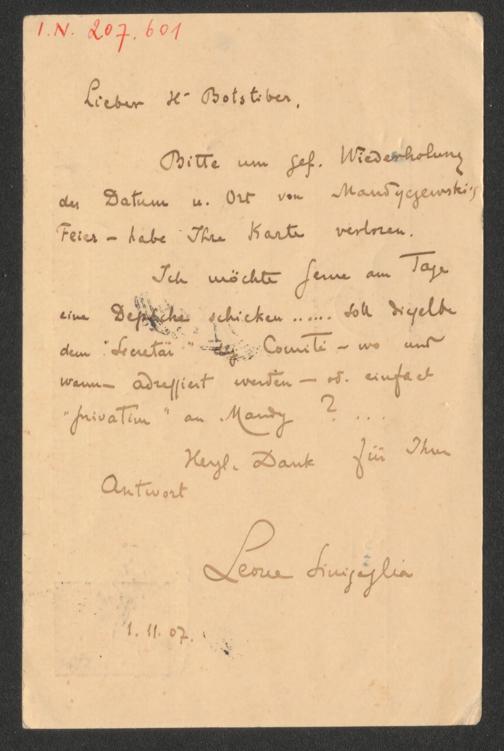 I.N. 207.601
Lieber Hr Botstiber,
Bitte um gef. Wiederholung
des Datum u. Ort von Mandyczewski's
Feier – habe Ihre Karte verloren.
Ich möchte gerne am Tage
eine Depesche schicken ...... soll dieselbe
dem "Secretär" des Comité – wo und
wann – adressiert werden – od. einfach
"privatim" an Mandy ? ...
Herzl. Dank für Ihre
Antwort
Leone Sinigaglia
1.11.07.